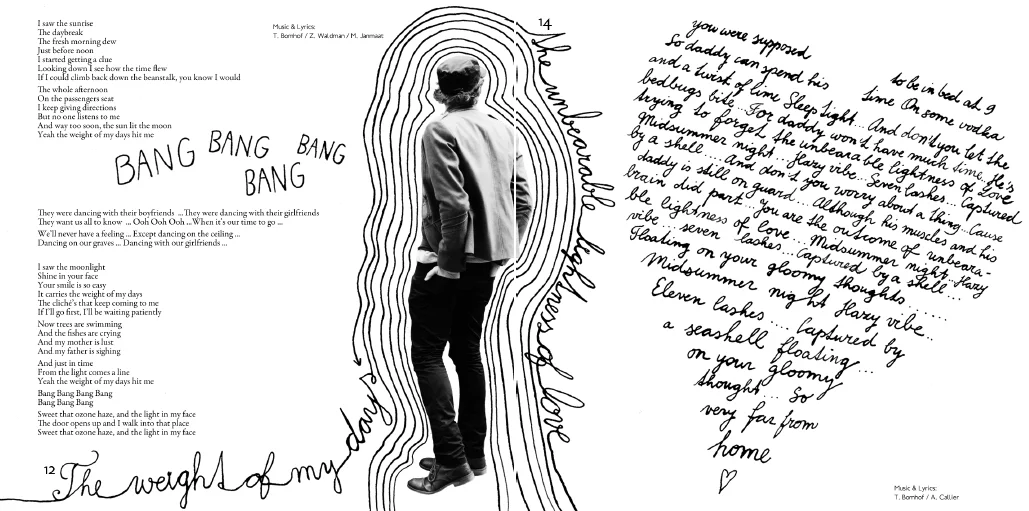 I saw the sunrise
The daybreak
The fresh morning dew
Just before noon
I started getting a clue
Looking down I see how the time flew
If I could climb back down the beanstalk, you know I would
The whole afternoon
On the passengers seat
I keep giving directions
But no one listens to me
And way too soon, the sun lit the moon
Yeah the weight of my days hit me
Music & Lyrics:
T. Bomhof / Z. Waldman / M. Janmaat
BANG BANG BANG
BANG
They were dancing with their boyfriends ...They were dancing with their girlfriends
They want us all to know ... Ooh Ooh Ooh ...When it's our time to go ...
We'll never have a feeling ... Except dancing on the ceiling ...
Dancing on our graves ... Dancing with our girlfriends ...
I saw the moonlight
Shine in your face
Your smile is so easy
It carries the weight of my days
The cliché's that keep coming to me
If I'll go first, I'll be waiting patiently
Now trees are swimming
And the fishes are crying
And my mother is lust
And my father is sighing
And just in time
From the light comes a line
Yeah the weight of my days hit me
Bang Bang Bang Bang
Bang Bang Bang Bang
Sweet that ozone haze, and the light in my face
The door opens up and I walk into that place
Sweet that ozone haze, and the light in my face
12
The weight of my days
14
The unbearable lightness of love
you were supposed to be in bed at 9
So daddy can spend his time On some vodka
and a twist of lime Sleep tight... And don't you let the
bedbugs bite... For daddy won't have much time... He's
trying to forget the unbearable lightness of Love
Midsummer night... Hazy vibe... Seven lashes... Captured
by a shell.... And don't you worry about a thing... Cause
daddy is still on guard.... Although his muscles and his
brain did part... You are the outcome of unbeara-
ble lightness of love... Midsummer night... Hazy
vibe ... seven lashes... Captured by a shell...
Floating on your gloomy thoughts......
Midsummer night Hazy vibe..
Eleven lashes.... Captured by
a seashell floating...
on your gloomy
thought... So
very far from
home
Music & Lyrics:
T. Bomhof / A. Callier